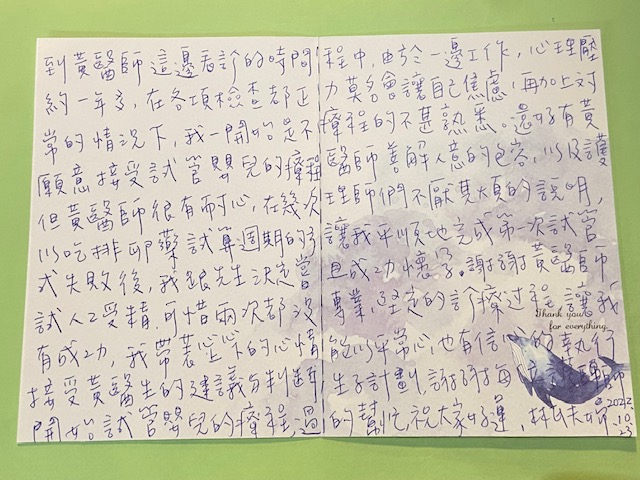 到黃醫師這邊看診的時間
約一年多，在各項檢查都正
常的情況下，我一開始是不
願意接受試管嬰兒的療程
但黃醫師很有耐心，在幾次
以吃排卵藥試算週期的方
式失敗後，我跟先生決定嘗
試人工受精，可惜兩次都沒
有成功，我帶忐忑的心情
接受黃醫生的建議與判斷，
開始試管嬰兒的療程，過
程中，由於一邊工作，心理壓
力莫名會讓自己焦慮，再加上對
療程的不甚熟悉。還好有黃
醫師善解人意的包容，以及護
理師們不厭其煩的說明，
讓我平順地完成第一次試管
且成功懷孕。謝謝黃醫師
專業，堅定的診療過程，讓我
能以平常心，也有信心的執行
生子計劃，謝謝每
醫師
的幫忙，祝大家好運，
2022
10
23
Thank you
for everything.